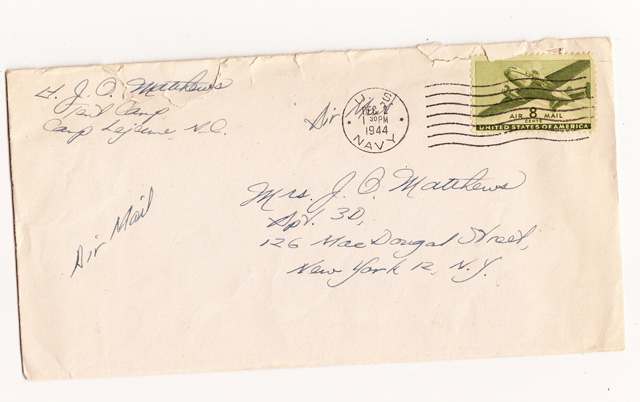 Lt. J. O. Matthews
Tent Camp
Camp Lejeune, N.C.
Air Mail
U.S.
DEC 2
1 30 PM
1944
NAVY
AIR 8 MAIL
CENTS
UNITED STATES OF AMERICA
Air Mail
Mrs. J. O. Matthews
Apt. 3D,
126 MacDougal Street,
New York 12, N.Y.